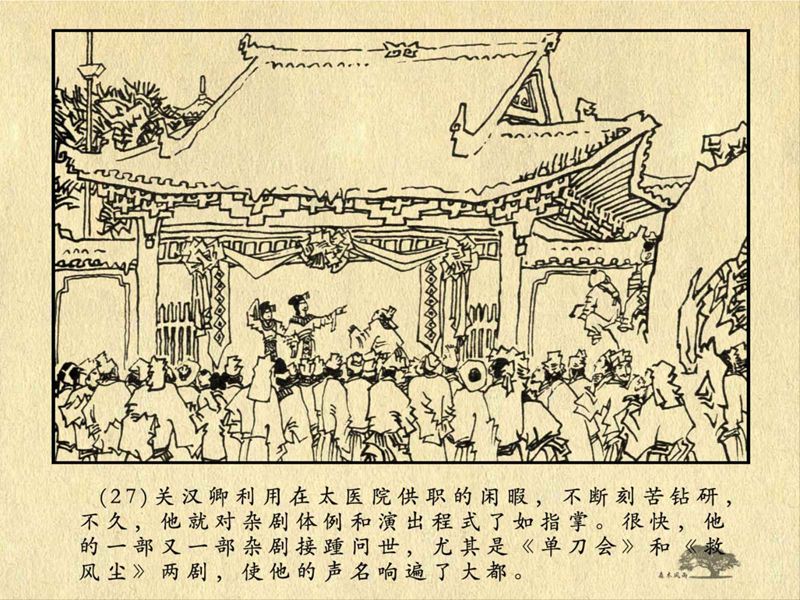 (27)关汉卿利用在太医院供职的闲暇，不断刻苦钻研，
不久，他就对杂剧体例和演出程式了如指掌。很快，他
的一部又一部杂剧接踵问世，尤其是《单刀会》和《救
风尘》两剧，使他的声名响遍了大都。